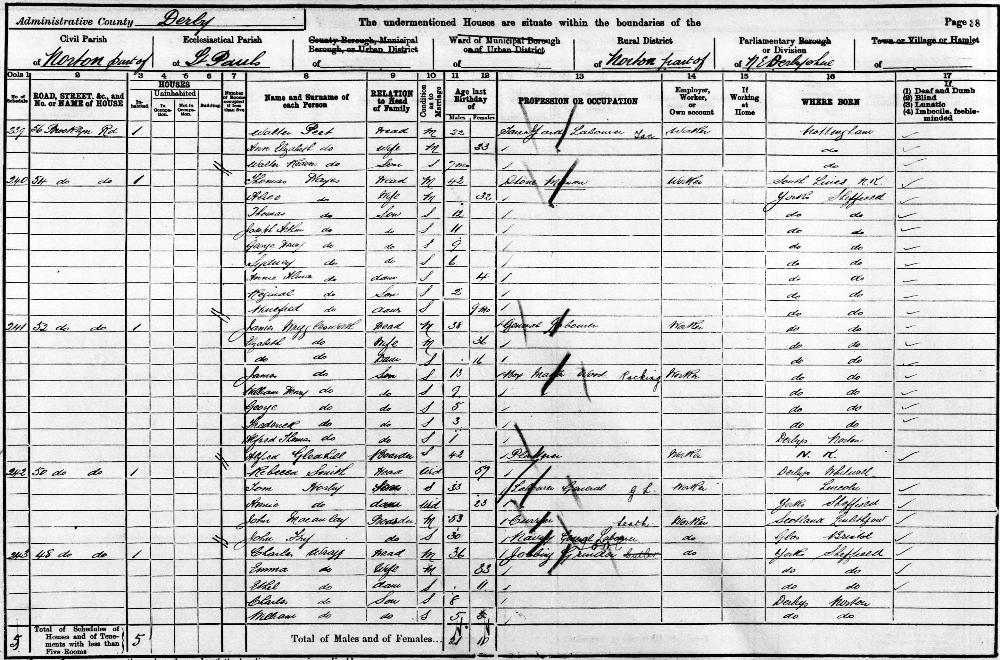 Administrative County Derby
The undermentioned Houses are situate within the boundaries of the
Page 38
Civil Parish
of Norton part of
Ecclesiastical Parish
of St Pauls
County Borough, Municipal Borough, or Urban District
of
Ward of Municipal Borough or of Urban District
of
Rural District
of Norton part of
Parliamentary Borough or Division
of N E Derbyshire
Town or Village or Hamlet
of
Cols 1 2 3 4 5 6 7 8 9 10 11 12 13 14 15 16 17
No. of Schedule
ROAD, STREET, &c., and No. or NAME of HOUSE
HOUSES
Inhabited
Uninhabited
In Occupation
Not in Occupation
Building
Number of Rooms occupied if less than five
Name and Surname of each Person
RELATION to Head of Family
Condition as to Marriage
Age last Birthday of
Males Females
PROFESSION OR OCCUPATION
Employer, Worker, or Own account
If Working at Home
WHERE BORN
If
(1) Deaf and Dumb
(2) Blind
(3) Lunatic
(4) Imbecile, feeble-minded
239 56 Brooklyn Rd 1 Walter Peet Head M 22 Labourer Worker Nottingham
Ann Elizabeth do Wife M 23 do
Walter do Son S 7 mo do
240 54 do do 1 Thomas Head M 42 Stone Mason Worker South N.K.
do Wife M 32 Yorks Sheffield
Thomas do Son S 12 do do
Joseph do do S 11 do do
George do do S 9 do do
Sydney do do S 6 do do
Annie do daur S 4 do do
Reginal do Son S 2 do do
do daur S 9 mo do do
241 52 do do 1 James Head M 38 General Labourer Worker do do
Elizabeth do Wife M 36 do do
do do Daur 16 do do
James do Son S 13 Worker do do
William Henry do do S 9 do do
George do do S 5 do do
Frederick do do S 3 do do
Alfred Thomas do do S 1 Derbys Norton
Alfred Gledhill Boarder S 42 Worker N. K.
242 50 do do 1 Rebecca Smith Head Wid 59 Derbys Whitwell
Tom S 33 Labourer General Worker Lincoln
Annie do daur Wid 23 Yorks Sheffield
John Macaulay Boarder M 53 Currier leath. Worker Scotland
John do S 30 Navvy Labourer do Glos Bristol
243 48 do do 1 Charles Head M 36 Jobbing Grinder do Yorks Sheffield
Emma do Wife M 33 do do
Ethel do daur S 11 do do
Charles do Son S 8 Derbys Norton
William do do S 5 do do
5 Total of Schedules of Houses and of Tenements with less than Five Rooms 5
Total of Males and of Females... 21 10